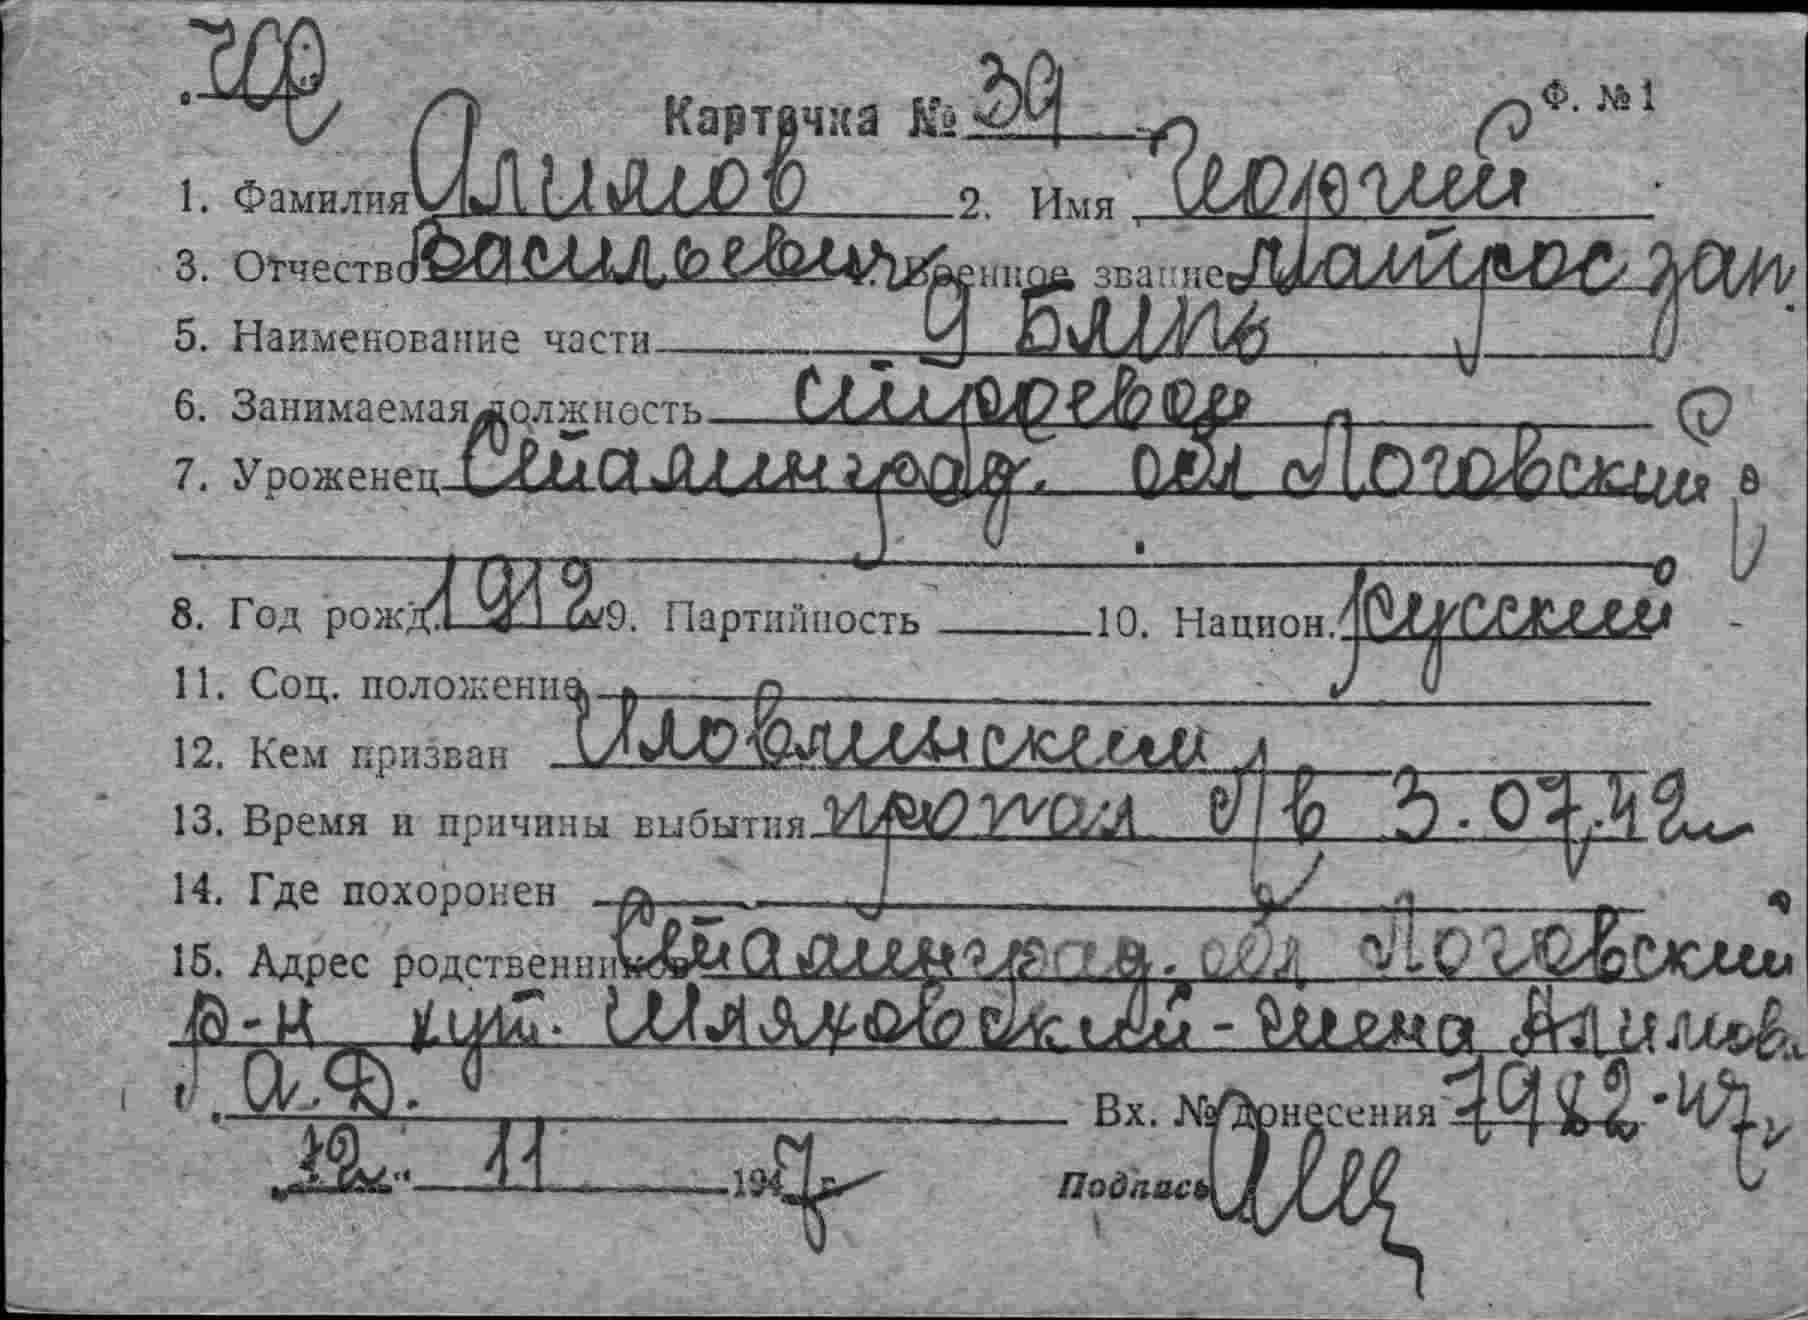 Ф. № 1
Карточка № 39
1. Фамилия Алимов 2. Имя Георгий
3. Отчество Васильевич 4. Военное звание Матрос зап.
5. Наименование части 9 Бмпь
6. Занимаемая должность строевой
7. Уроженец Сталинград. обл Логовский р
8. Год рожд. 1912 9. Партийность 10. Национ. русский
11. Соц. положение
12. Кем призван Иловлинский
13. Время и причины выбытия пропал б/в 3.07.42
14. Где похоронен
15. Адрес родственников Сталинград. обл Логовский
р-н хут. Шляховский - жена Алимова
А.Ф.
Вх. № донесения 1982-47
"12" 11 1947 г.
Подпись